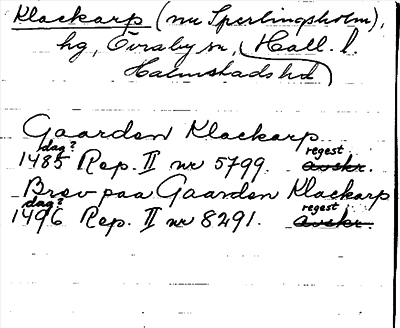 Klackarp (nu Sperlingsholm),
hg, Övraby sn, Hall. l.
Halmstads hd
Gaarden Klackarp
dag? regest
1485 Rep. II nr 5799. avskr.
Brev paa Gaarden Klackarp
dag? regest
1496 Rep. II nr 8291. avskr.